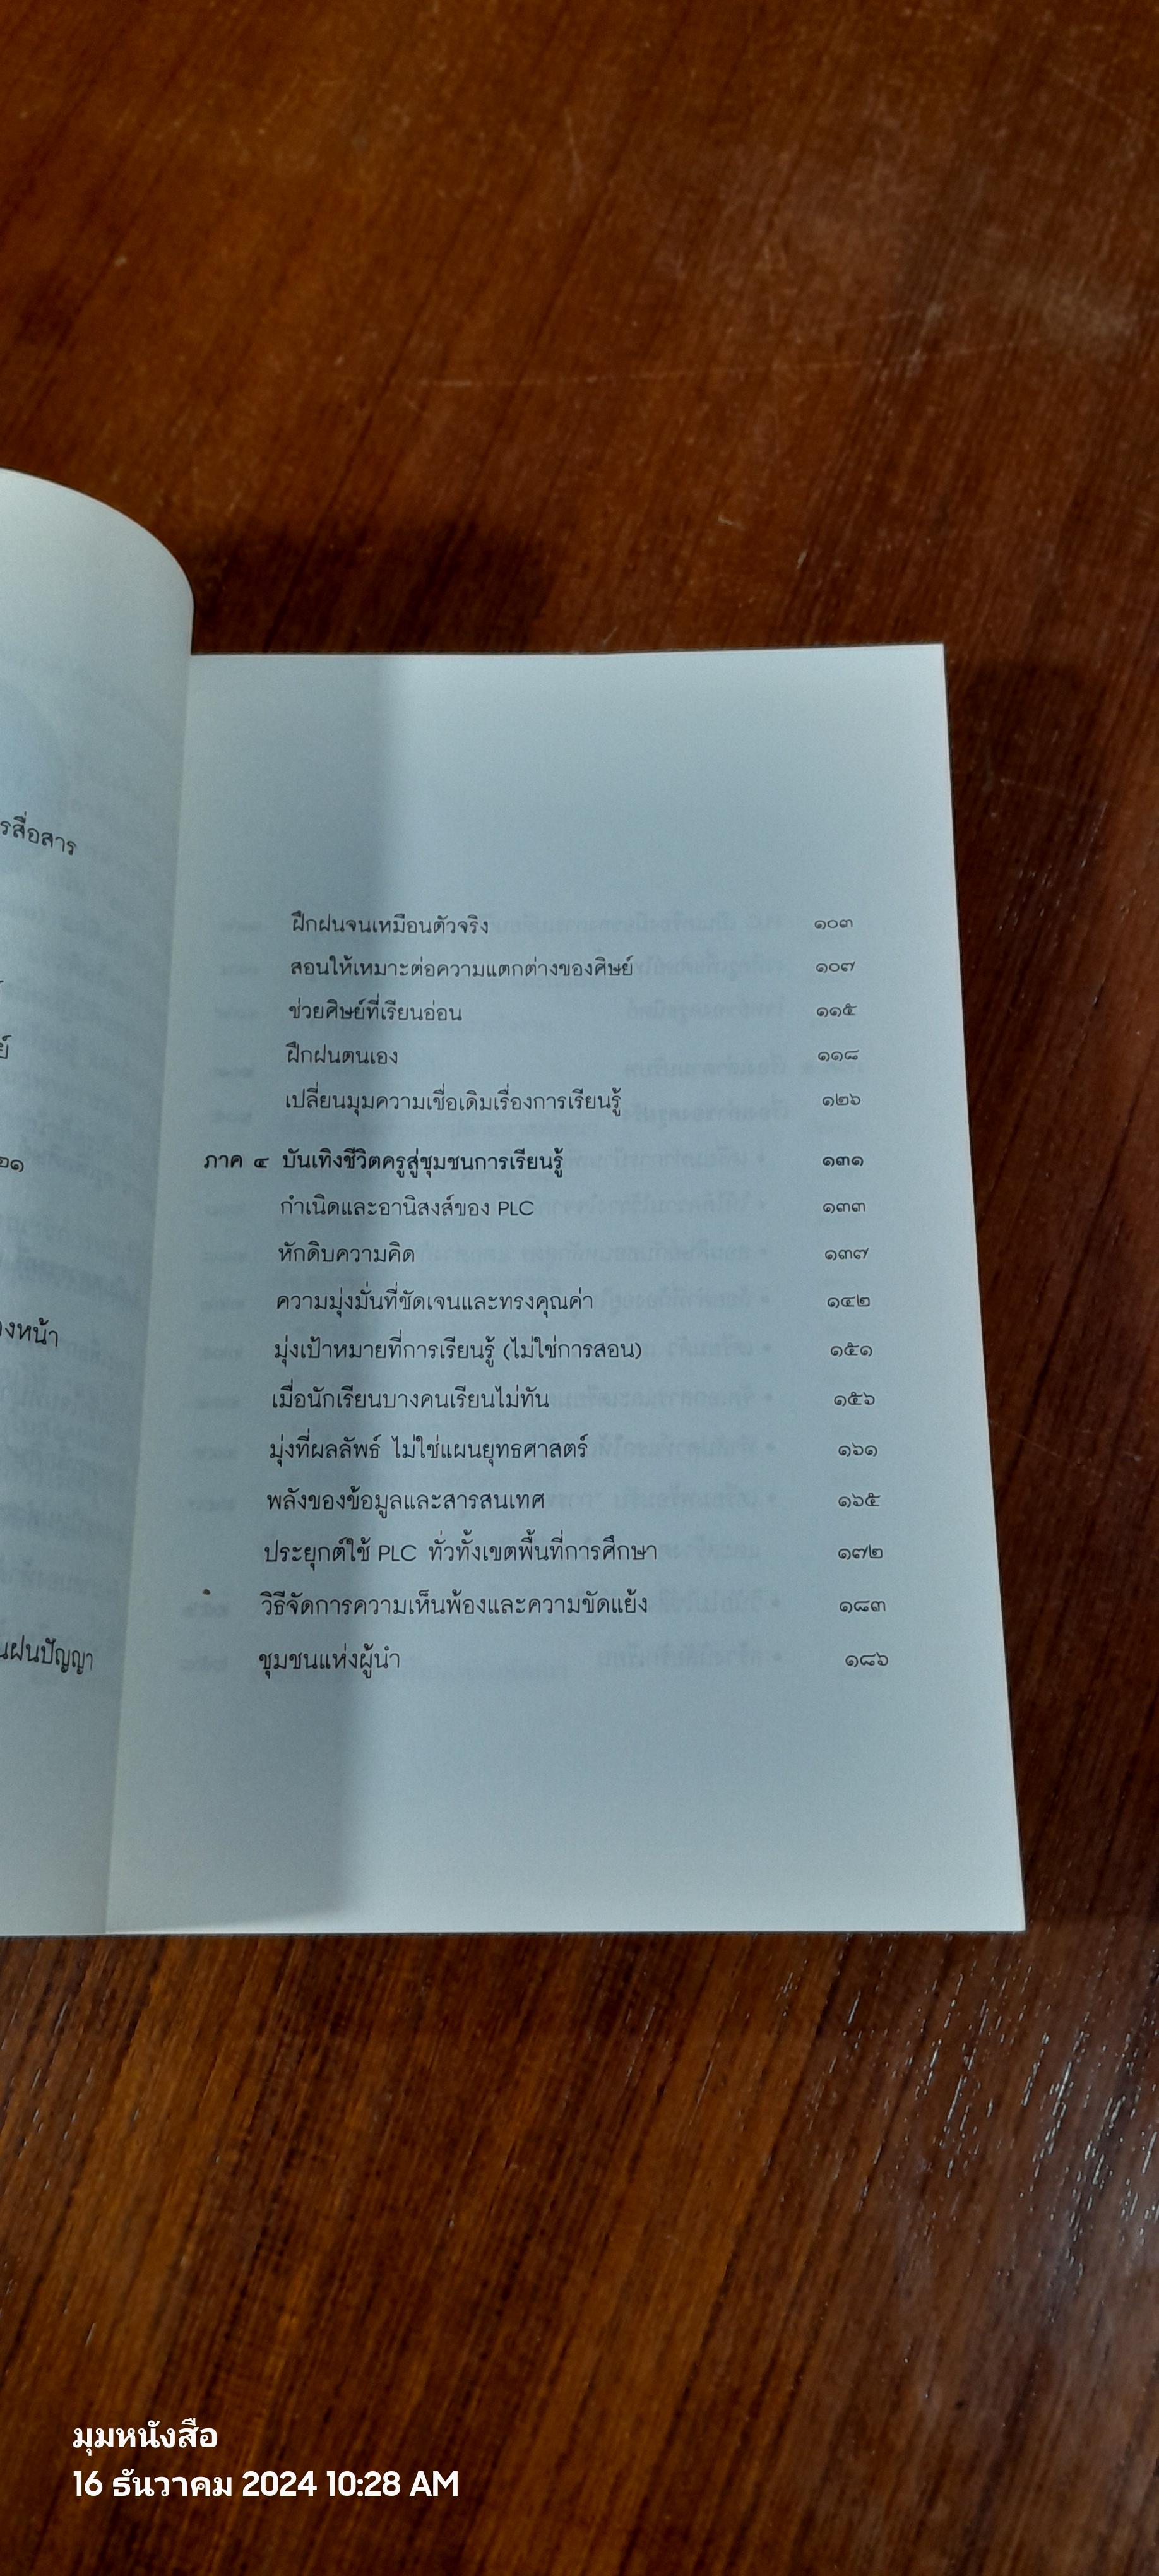 รสื่อสาร
๒๑
งหน้า
นฝนปัญญา
ฝึกฝนจนเหมือนตัวจริง ๑๐๓
สอนให้เหมาะต่อความแตกต่างของศิษย์ ๑๐๗
ช่วยศิษย์ที่เรียนอ่อน ๑๑๕
ฝึกฝนตนเอง ๑๑๘
เปลี่ยนมุมความเชื่อเดิมเรื่องการเรียนรู้ ๑๒๖
ภาค ๔ บันเทิงชีวิตครูสู่ชุมชนการเรียนรู้ ๑๓๑
กำเนิดและอานิสงส์ของ PLC ๑๓๓
หักดิบความคิด ๑๓๗
ความมุ่งมั่นที่ชัดเจนและทรงคุณค่า ๑๔๒
มุ่งเป้าหมายที่การเรียนรู้ (ไม่ใช่การสอน) ๑๕๑
เมื่อนักเรียนบางคนเรียนไม่ทัน ๑๕๖
มุ่งที่ผลลัพธ์ ไม่ใช่แผนยุทธศาสตร์ ๑๖๑
พลังของข้อมูลและสารสนเทศ ๑๖๕
ประยุกต์ใช้ PLC ทั่วทั้งเขตพื้นที่การศึกษา ๑๗๒
วิธีจัดการความเห็นพ้องและความขัดแย้ง ๑๘๓
ชุมชนแห่งผู้นำ ๑๘๖
มุมหนังสือ
16 ธันวาคม 2024 10:28 AM